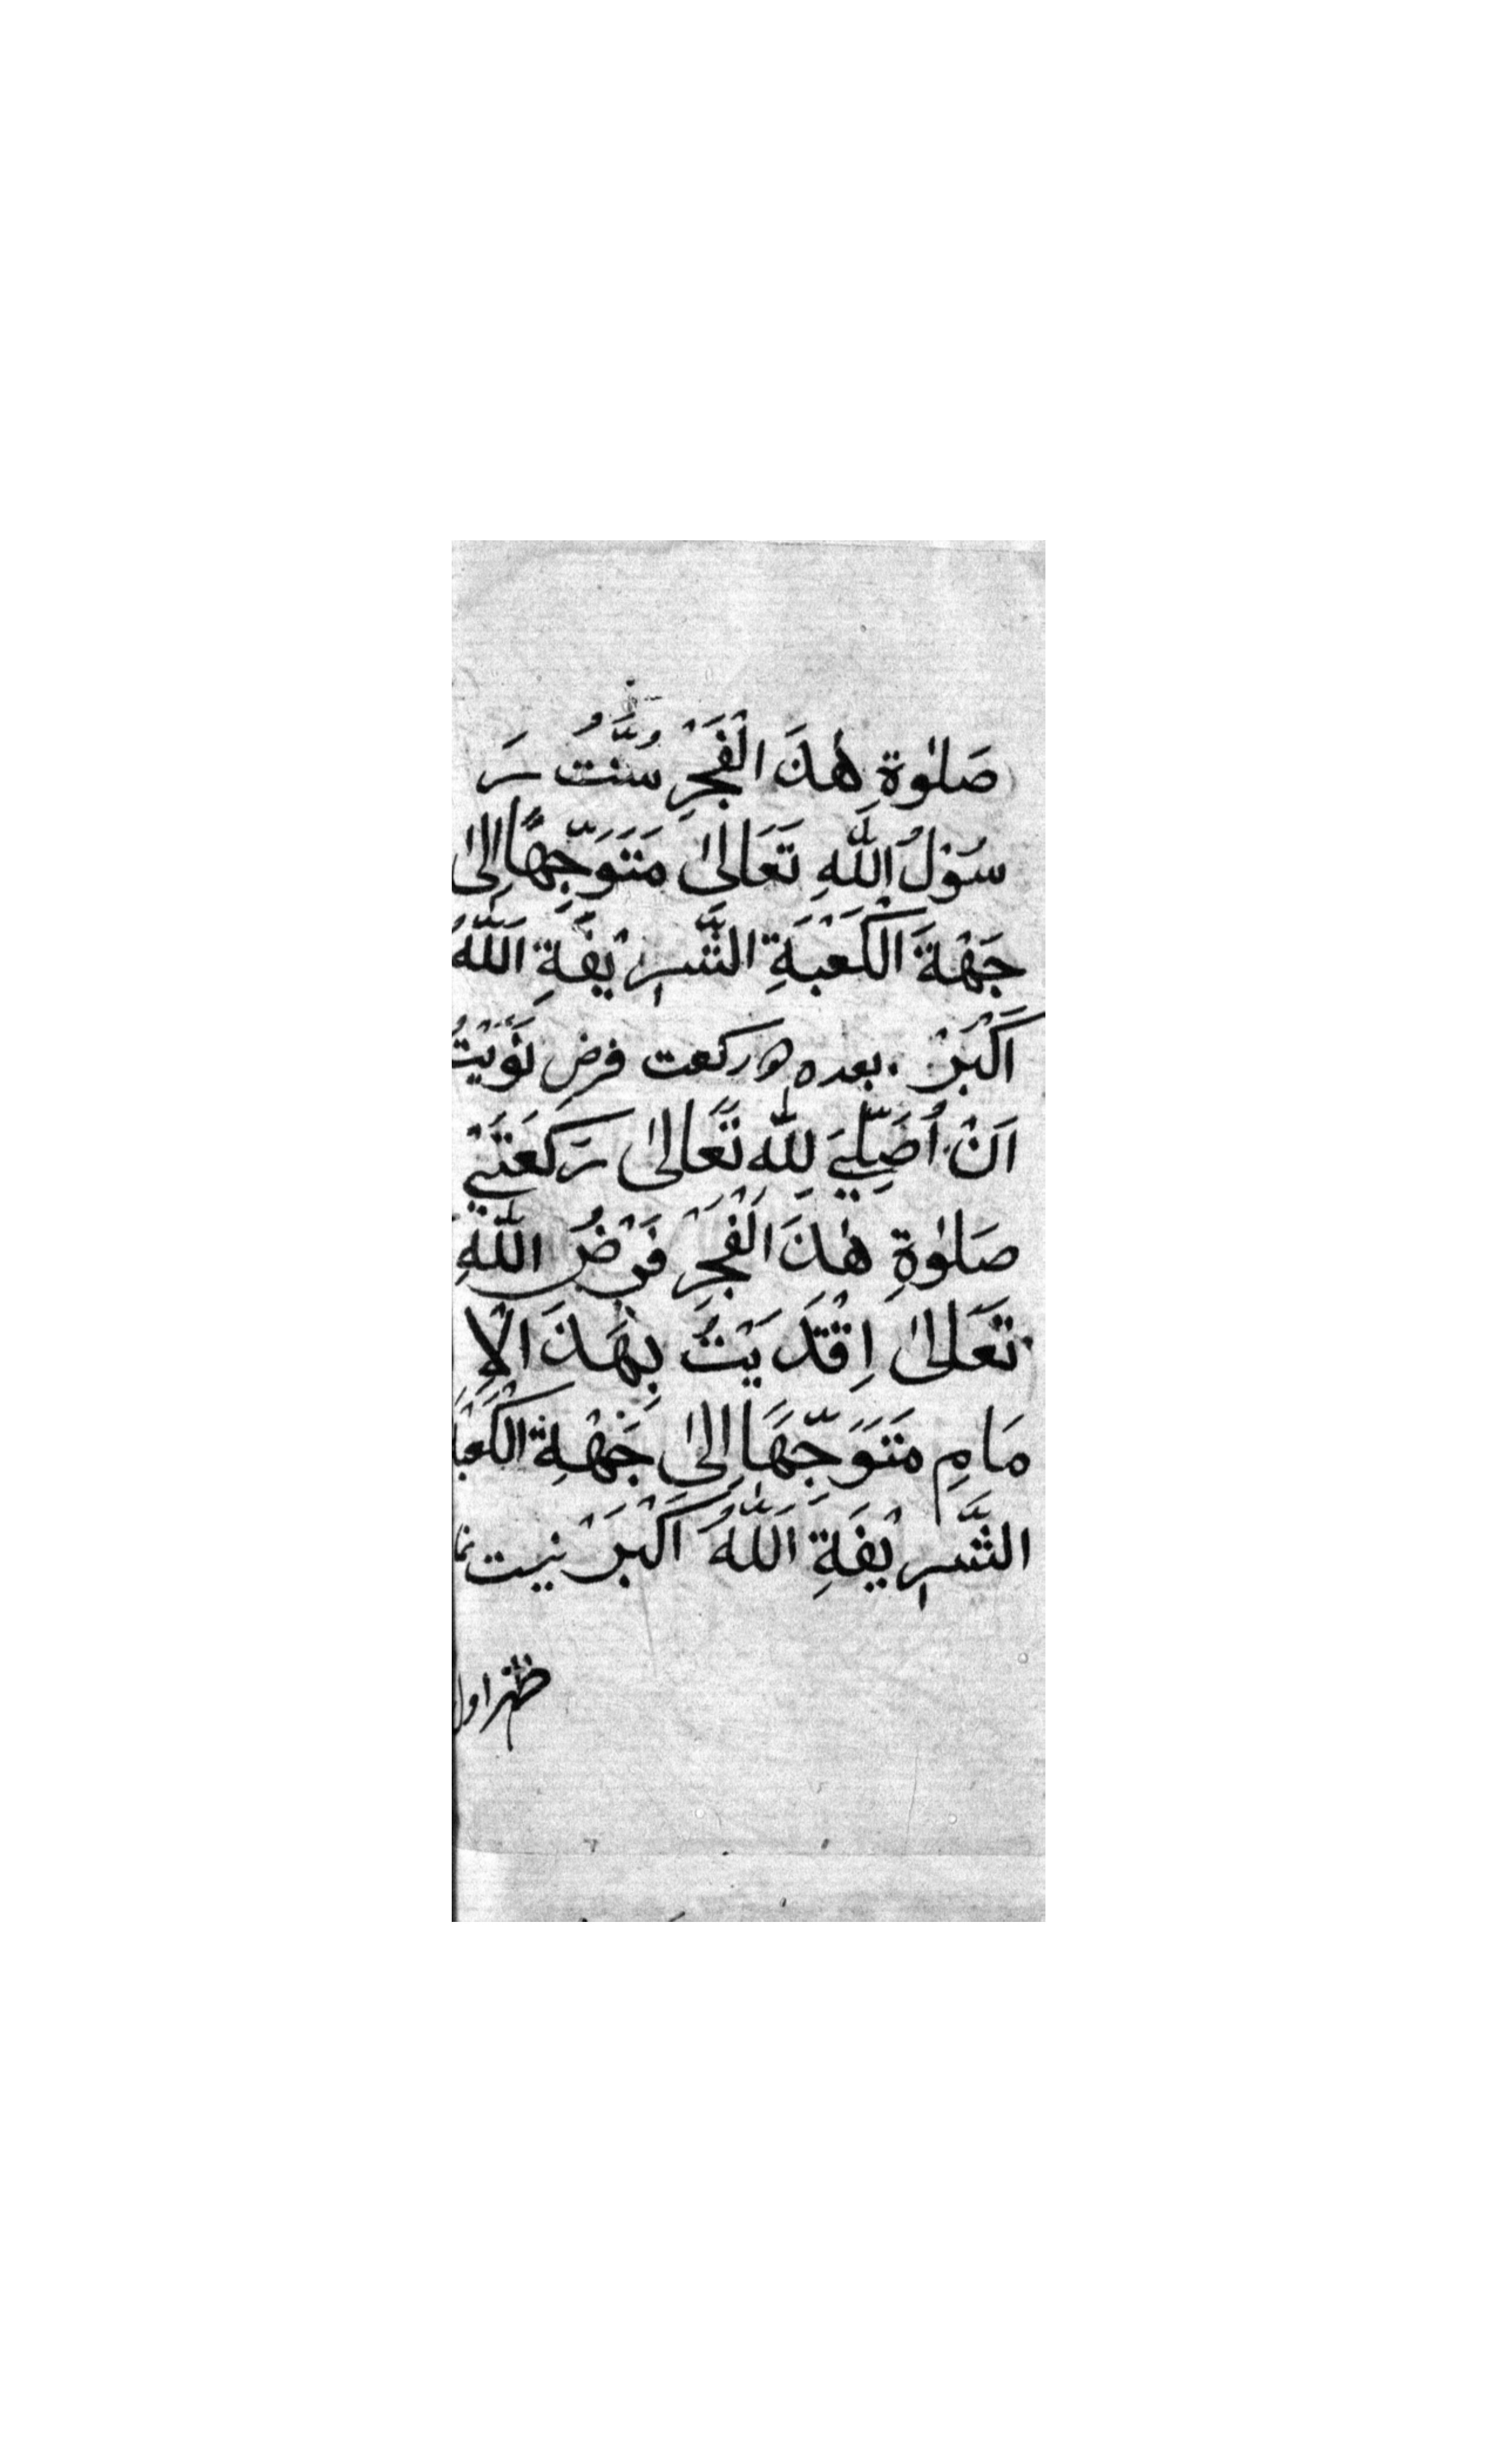 صَلٰوةِ هٰذَ الْفَجْرِ سُنَّتُ رَ
سُوْلُ اللّٰهِ تَعَالىٰ مَتَوَجِّهًا اِلىٰ
جَهْةَ الْكَعْبَةِ الشَّرِيْفَةِ اَللّٰهُ
اَكْبَرْ . بعده دو ركعت فرض نَوَيْتُ
اَنْ اُصَلِّيَ لِلّٰهِ تَعَالىٰ رَكَعَتَيْ
صَلٰوةِ هٰذَ الْفَجْرِ فَرْضُ اللّٰهِ
تَعَالىٰ اِقْتَدَيْتُ بِهٰذَ الْاِ
مَامِ مَتَوَجِّهًا اِلىٰ جَهْةِ الْكَعْبَة
الشَّرِيْفَةِ اَللّٰهُ اَكْبَرْ نيت نماز
ظهر اول